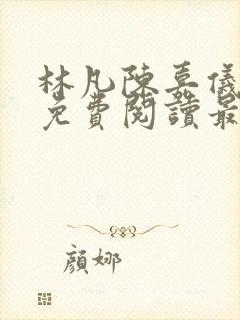 林凡陳嘉儀
免費閱讀最
顏娜